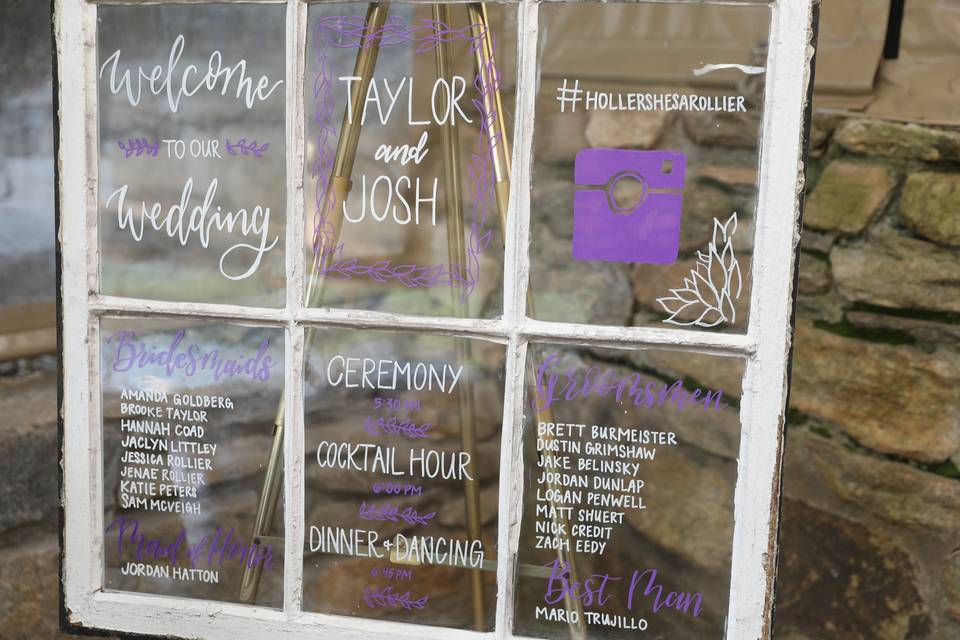 welcome
TO OUR
wedding
TAYLOR
and
JOSH
#HOLLERSHESAROLLIER
Bridesmaids
AMANDA GOLDBERG
BROOKE TAYLOR
HANNAH COAD
JACLYN LITTLEY
JESSICA ROLLIER
JENAE ROLLIER
KATIE PETERS
SAM MCVEIGH
Maid of Honor
JORDAN HATTON
CEREMONY
5:30 PM
COCKTAIL HOUR
6:00 PM
DINNER + DANCING
6:45 PM
Groomsmen
BRETT BURMEISTER
DUSTIN GRIMSHAW
JAKE BELINSKY
JORDAN DUNLAP
LOGAN PENWELL
MATT SHUERT
NICK CREDIT
ZACH EEDY
Best Man
MARIO TRUJILLO